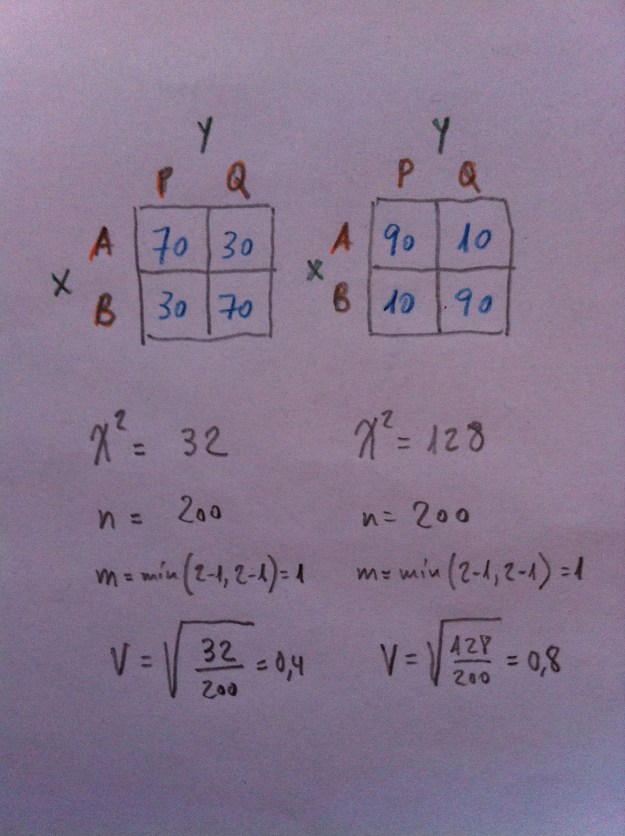 Y Y
P Q P Q
A 70 30 A 90 10
X X
B 30 70 B 10 90
χ² = 32 χ² = 128
n = 200 n = 200
m = min(2-1, 2-1) = 1 m = min(2-1, 2-1) = 1
V = √(32/200) = 0,4 V = √(128/200) = 0,8